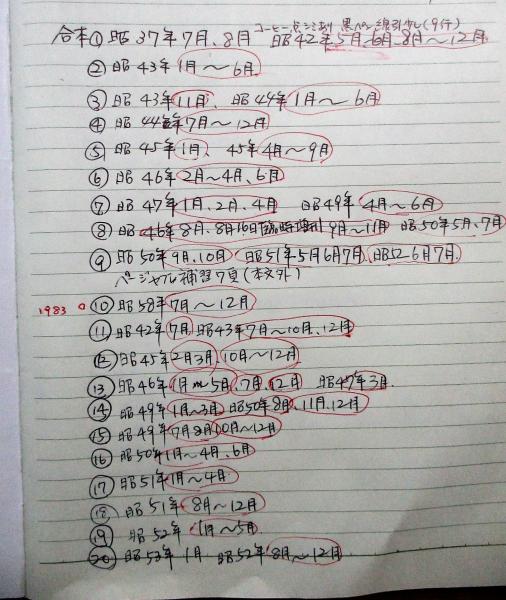 コーヒー点シミあり 黒ペン線引少し(9行)
合本① 昭37年7月、8月 昭42年5月、6月、8月〜12月
② 昭43年1月〜6月
③ 昭43年11月、昭44年1月〜6月
④ 昭44年7月〜12月
⑤ 昭45年1月、45年4月〜9月
⑥ 昭46年2月〜4月、6月
⑦ 昭47年1月、2月、4月 昭49年4月〜6月
⑧ 昭46年8月、8月16日臨時増刊9月〜11月 昭50年5月、7月
⑨ 昭50年9月、10月 昭51年5月6月7月、昭52-6月7月
ページャル補習7頁(本文外)
1983 ⑩ 昭58年7月〜12月
⑪ 昭42年7月 昭43年7月〜10月、12月
⑫ 昭45年2月3月、10月〜12月
⑬ 昭46年1月〜5月、7月、12月 昭47年3月
⑭ 昭49年1月〜3月 昭50年8月、11月、12月
⑮ 昭49年7月8月10月〜12月
⑯ 昭50年1月〜4月、6月
⑰ 昭51年1月〜4月
⑱ 昭51年8月〜12月
⑲ 昭52年1月〜5月
⑳ 昭53年1月 昭52年8月〜12月